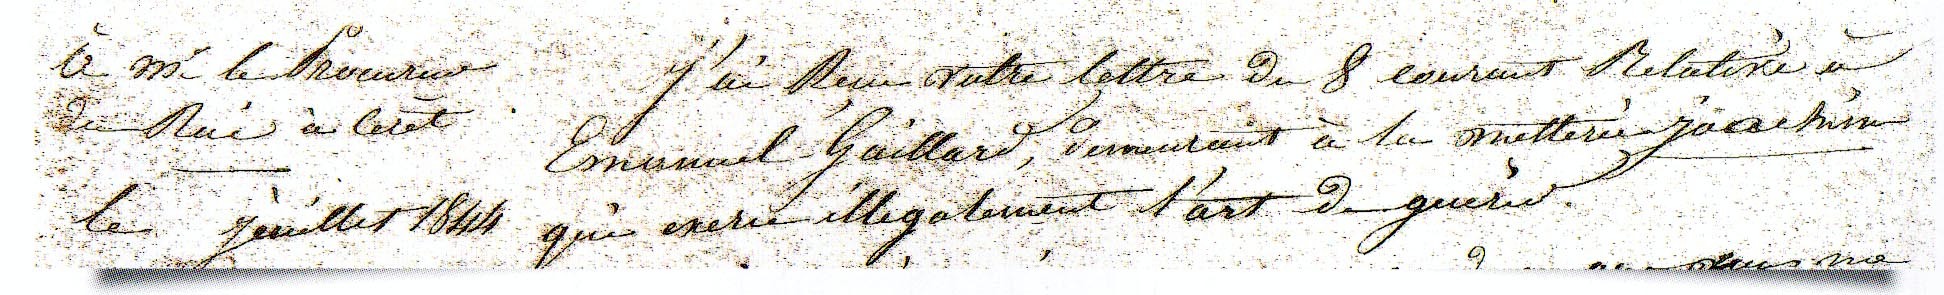 à Mr le Procureur
du Roi à Céret
le juillet 1844
J'ai Recu votre lettre du 8 courant Relative à
Emanuel Gaillard, demeurant à la metterie joachim
qui exerce illégalement l'art de guérir.
vous me